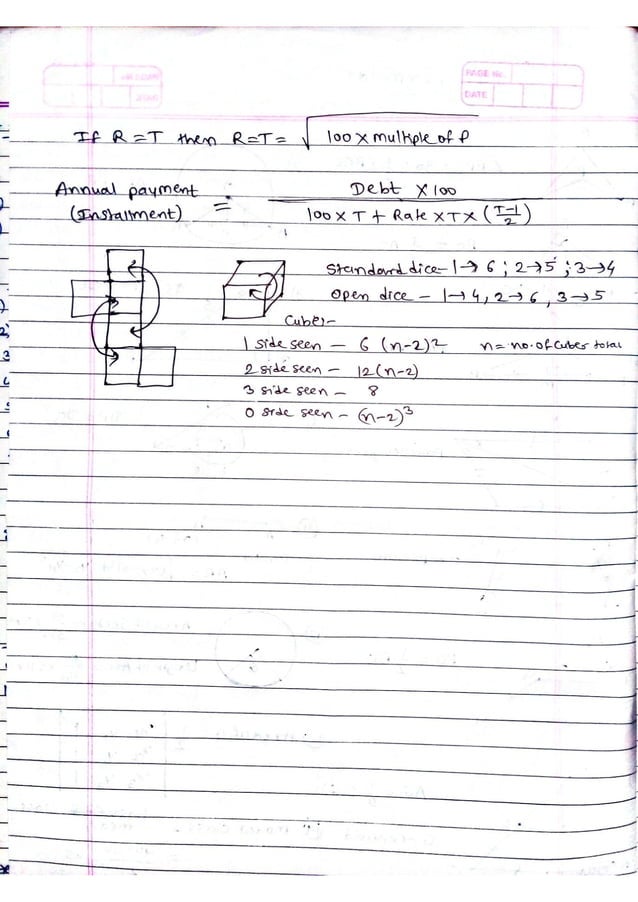 PAGE No.
DATE
If R = T then R=T= √100 × multiple of P
Annual payment (Installment) = Debt × 100 / 100 × T + Rate × T × (T-1/2)
Standard dice - 1→6 ; 2→5 ; 3→4
Open dice - 1→4, 2→6, 3→5
Cubes-
1 side seen - 6 (n-2)² n = no. of cubes total
2 side seen - 12(n-2)
3 side seen - 8
0 side seen - (n-2)³